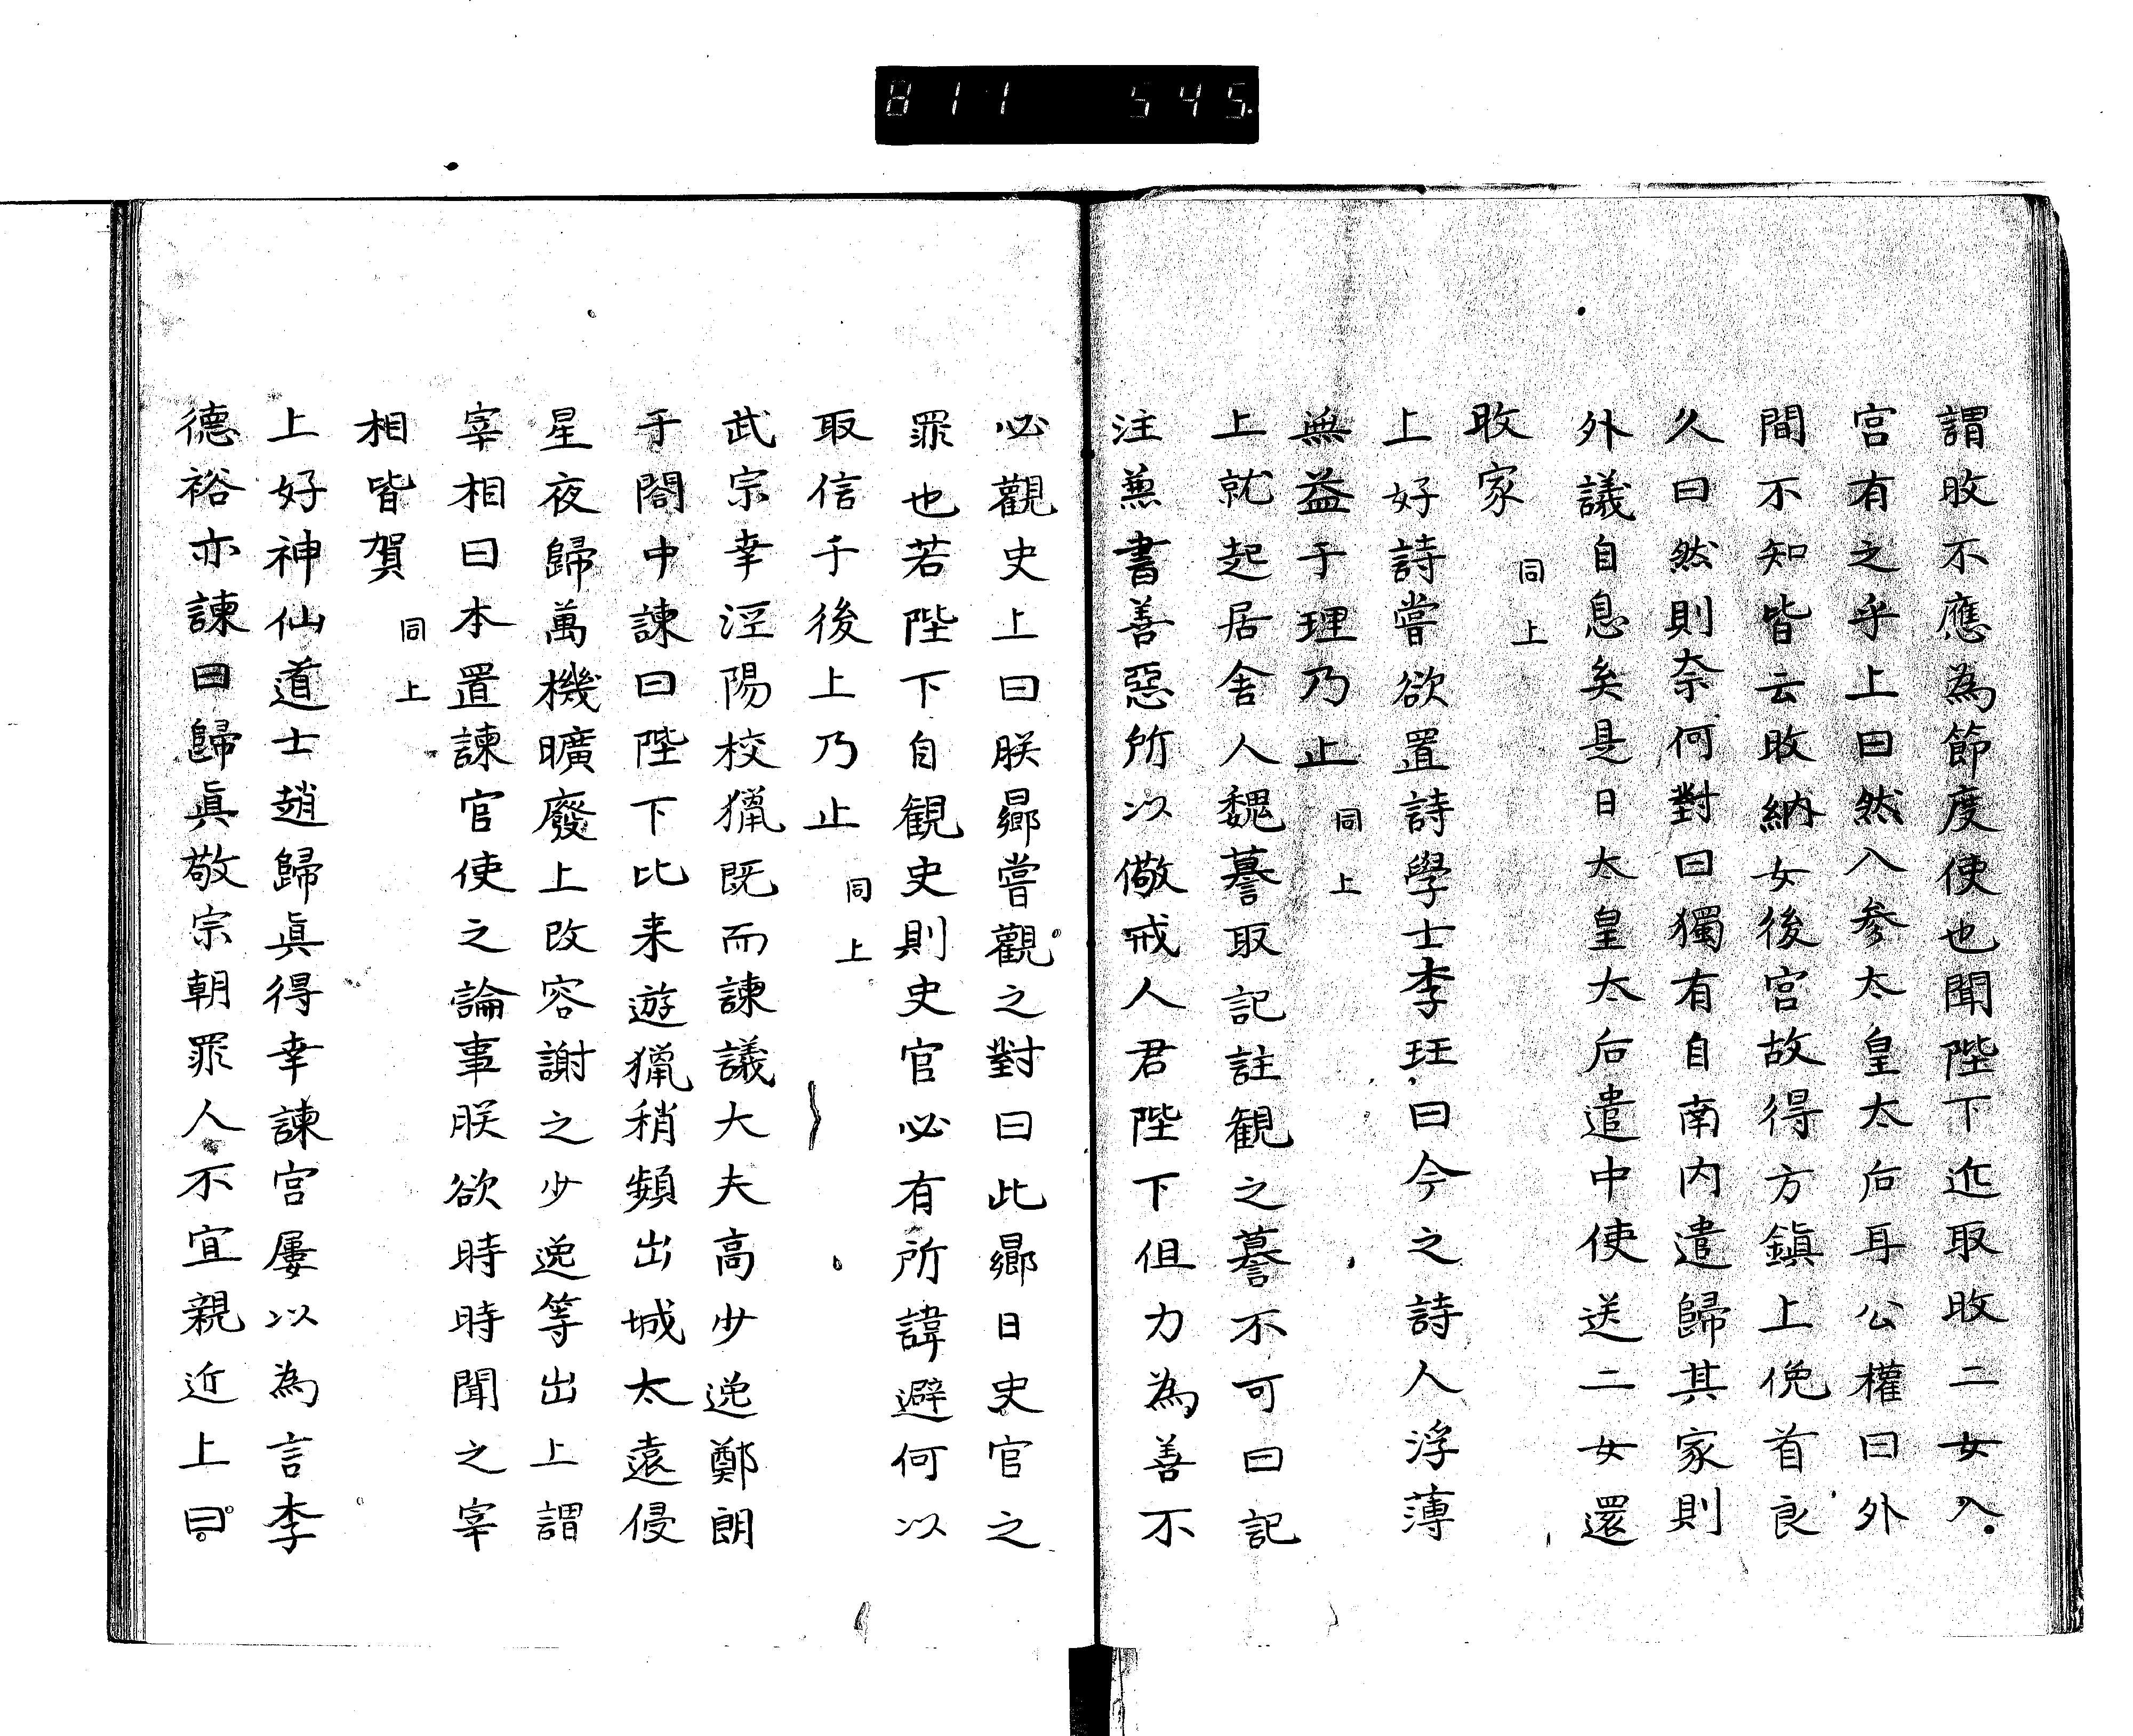 811 545.
謂旼不應為節度使也聞陛下近取旼二女入
宮有之乎上曰然入參太皇太后耳公權曰外
間不知皆云旼納女後宮故得方鎮上俛首良
久曰然則奈何對曰獨有自南内遣歸其家則
外議自息矣是日太皇太后遣中使送二女還
旼家 同上
上好詩嘗欲置詩學士李珏曰今之詩人浮薄
無益于理乃止 同上
上就起居舍人魏謩取記註観之謩不可曰記
注兼書善惡所以儆戒人君陛下但力為善不
必觀史上曰朕曏嘗觀之對曰此曏日史官之
罪也若陛下自観史則史官必有所諱避何以
取信于後上乃止 同上
武宗幸涇陽校獵既而諫議大夫高少逸鄭朗
于閤中諫曰陛下比来遊獵稍頻出城太遠侵
星夜歸萬機曠廢上改容謝之少逸等出上謂
宰相曰本置諫官使之論事朕欲時時聞之宰
相皆賀 同上
上好神仙道士趙歸眞得幸諫官屡以為言李
德裕亦諫曰歸眞敬宗朝罪人不宜親近上曰